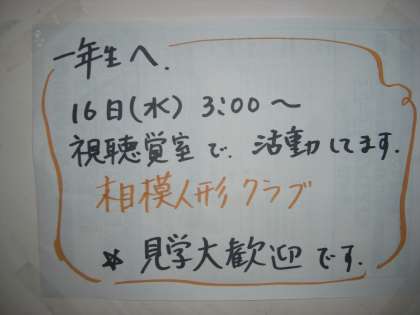 一年生へ.
16日(水) 3:00〜
視聴覚室で. 活動してます.
相模人形クラブ
* 見学大歓迎です.